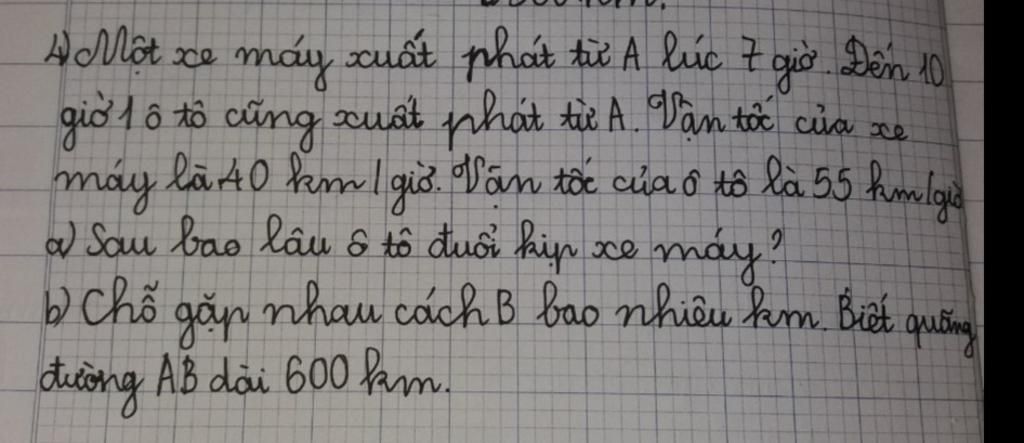 4) Một xe máy xuất phát từ A lúc 7 giờ. Đến 10
giờ 1 ô tô cũng xuất phát từ A. Vận tốc của xe
máy là 40 km/giờ. Vận tốc của ô tô là 55 km/giờ
a) Sau bao lâu ô tô đuổi kịp xe máy?
b) Chỗ gặp nhau cách B bao nhiêu km. Biết quãng
đường AB dài 600 km.